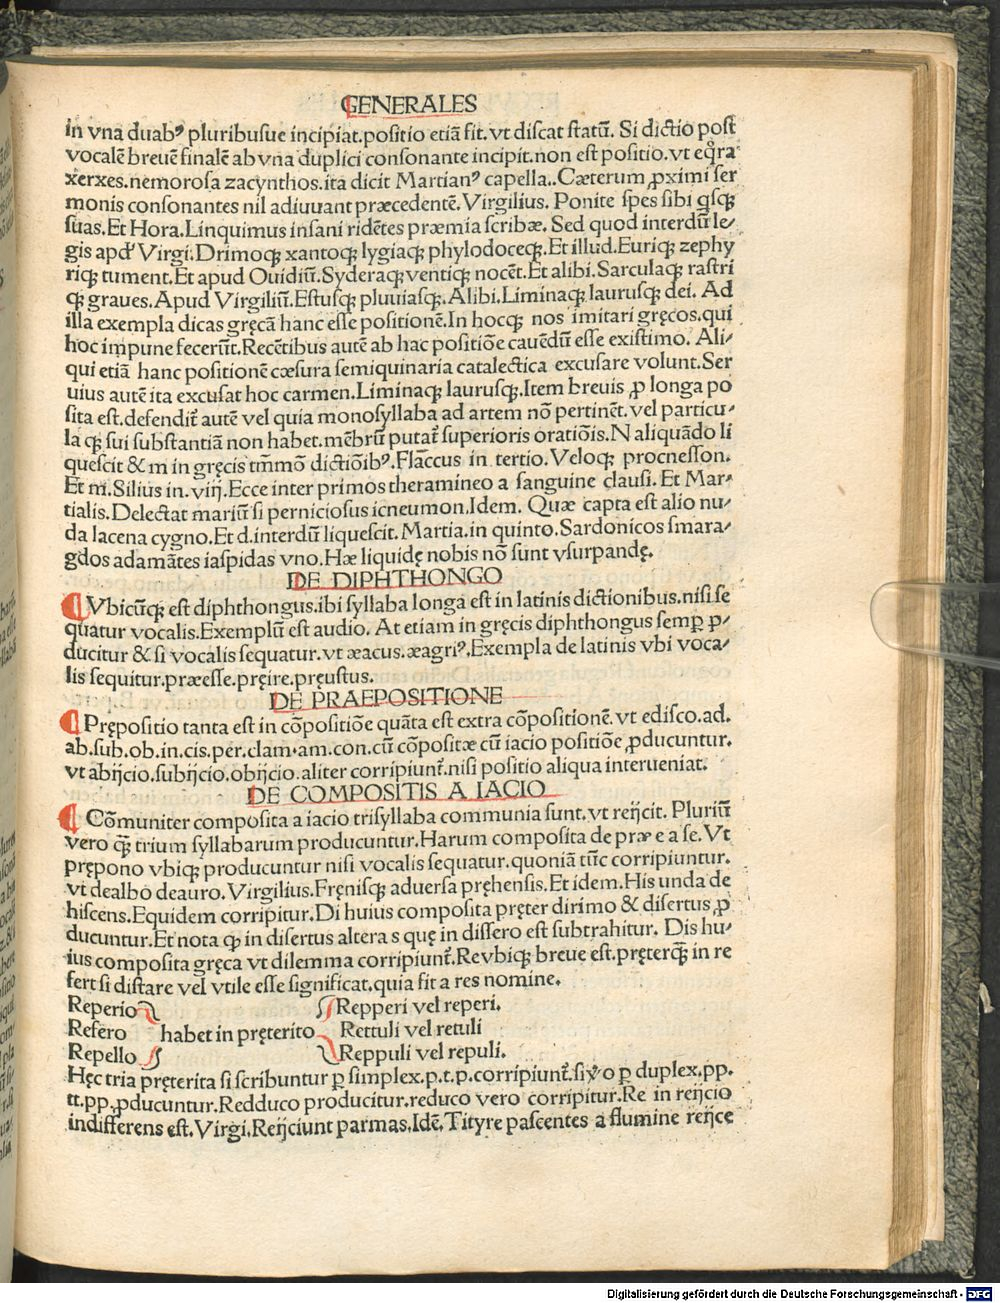 GENERALES
in vna duabꝰ pluribusue incipiat.positio etiā fit.vt discat statū. Si dictio post
vocalē breuē finalē ab vna duplici consonante incipit.non est positio.vt
xerxes.nemorosa zacynthos.ita dicit Martianꝰ capella..Cæterum ꝓximi ser
monis consonantes nil adiuuant præcedentē.Virgilius. Ponite spes sibi qsqꝫ
suas.Et Hora.Linquimus insani ridētes præmia scribæ. Sed quod interdū le⸗
gis apd' Virgi.Drimoqꝫ xantoqꝫ lygiaqꝫ phylodoceqꝫ.Et illud.Euriqꝫ zephy
riqꝫ tument.Et apud Ouidiū.Syderaqꝫ ventiqꝫ nocēt.Et alibi.Sarculaqꝫ rastri
qꝫ graues.Apud Virgiliū.Estusqꝫ pluuiasqꝫ.Alibi.Liminaqꝫ laurusqꝫ dei. Ad
illa exempla dicas gręcā hanc esse positionē.In hocqꝫ nos imitari gręcos.qui
hoc impune fecerūt.Recētibus autē ab hac positiōe cauēdū esse existimo. Ali⸗
qui etiā hanc positionē cæsura semiquinaria catalectica excusare volunt.Ser
uius autē ita excusat hoc carmen.Liminaqꝫ laurusqꝫ.Item breuis ꝓ longa po
sita est.defendit᷑ autē vel quia monosyllaba ad artem nō pertinēt.vel particu⸗
la qꝫ sui substantiā non habet.mēbrū putat᷑ superioris oratiōis.N aliquādo li
quescit & m in gręcis tm̄mō dictiōibꝰ.Flaccus in tertio.Veloqꝫ procnesson.
Et m.Silius in.viij.Ecce inter primos theramineo a sanguine clausi. Et Mar⸗
tialis.Delectat mariū si perniciosus icneumon.Idem. Quæ capta est alio nu⸗
da lacena cygno.Et d.interdū liquescit. Martia.in quinto.Sardonicos smara⸗
gdos adamātes iaspidas vno.Hæ liquidę nobis nō sunt vsurpandę.
DE DIPHTHONGO
Vbicūqꝫ est diphthongus.ibi syllaba longa est in latinis dictionibus.nisi se
quatur vocalis.Exemplū est audio. At etiam in gręcis diphthongus semꝑ ꝓ⸗
ducitur & si vocalis sequatur.vt æacus.æagriꝰ.Exempla de latinis vbi voca⸗
lis sequitur.præesse.pręire.pręustus.
DE PRAEPOSITIONE
Prępositio tanta est in cōpositiōe quāta est extra cōpositionē.vt edisco.ad.
ab.sub.ob.in.cis.per.clam.am.con.cū cōpositæ cū iacio positiōe ꝓducuntur.
vt abijcio.subijcio.obijcio.aliter corripiunt᷑.nisi positio aliqua interueniat.
DE COMPOSITIS A IACIO
Cōmuniter composita a iacio trisyllaba communia sunt.vt reijcit. Pluriū
vero qꝫ̄ trium syllabarum producuntur.Harum composita de præ e a se. Vt
prępono vbiqꝫ producuntur nisi vocalis sequatur.quoniā tūc corripiuntur.
vt dealbo deauro. Virgilius.Fręnisqꝫ aduersa pręhensis.Et idem.His unda de
hiscens.Equidem corripitur.Di huius composita pręter dirimo & disertus ꝓ
ducuntur.Et nota ꝙ in disertus altera s quę in dissero est subtrahitur. Dis hu⸗
ius composita gręca vt dilemma corripiunt᷑.Re vbiqꝫ breue est.pręterqꝫ̄ in re
fert si distare vel vtile esse significat.quia fit a res nomine.
Reperio Repperi vel reperi.
Refero habet in pręterito Rettuli vel retuli
Repello Reppuli vel repuli.
Hęc tria pręterita si scribuntur ꝑ simplex.p.t.p.corripiunt᷑.si vo ꝑ duplex.pp.
tt.pp.ꝓducuntur.Redduco producitur.reduco vero corripitur.Re in reijcio
indifferens est.Virgi.Reijciunt parmas.Idē.Tityre pascentes a flumine reijce
Digitalisierung gefördert durch die Deutsche Forschungsgemeinschaft - DFG